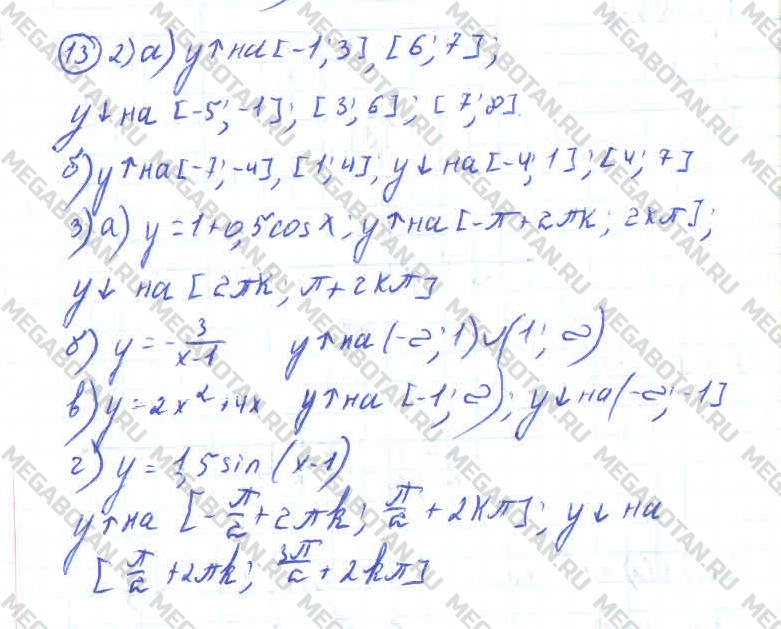 13 2) а) y↑ на [-1; 3], [6; 7];
y↓ на [-5; -1]; [3; 6]; [7; 8].
б) y↑ на [-7; -4], [1; 4]; y↓ на [-4; 1]; [4; 7]
3) а) y = 1+0,5cos x; y↑ на [-π+2πk; 2kπ];
y↓ на [2πk; π+2kπ]
б) y = -3/(x-1) y↑ на (-∞; 1)∪(1; ∞)
в) y = 2x²+4x y↑ на [-1; ∞); y↓ на (-∞; -1]
г) y = 1,5 sin(x-1)
y↑ на [-π/2+2πk; π/2+2kπ]; y↓ на
[π/2+2πk; 3π/2+2kπ]
MEGABOTAN.RU